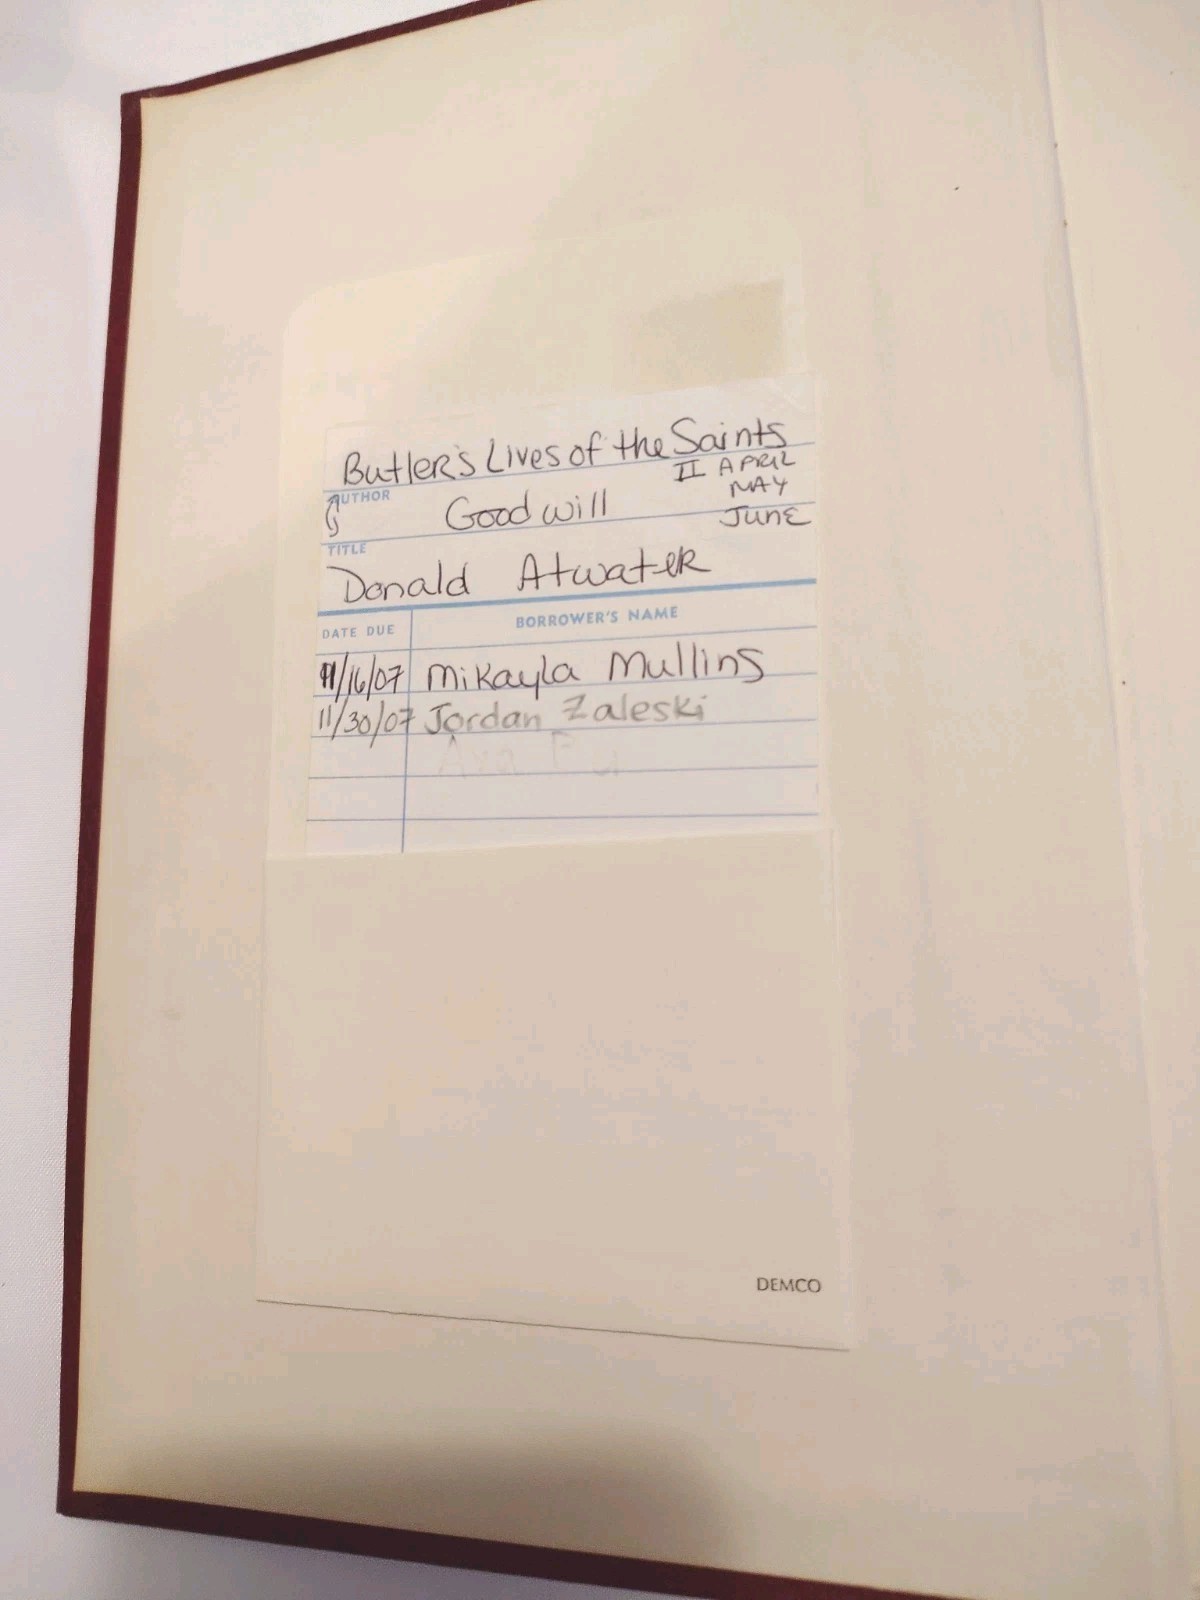 Butler's Lives of the Saints
II APRIL
MAY
AUTHOR
Goodwill
June
TITLE
Donald Atwater
DATE DUE
BORROWER'S NAME
11/16/07 Mikayla Mullins
11/30/07 Jordan Zaleski
Ava
DEMCO